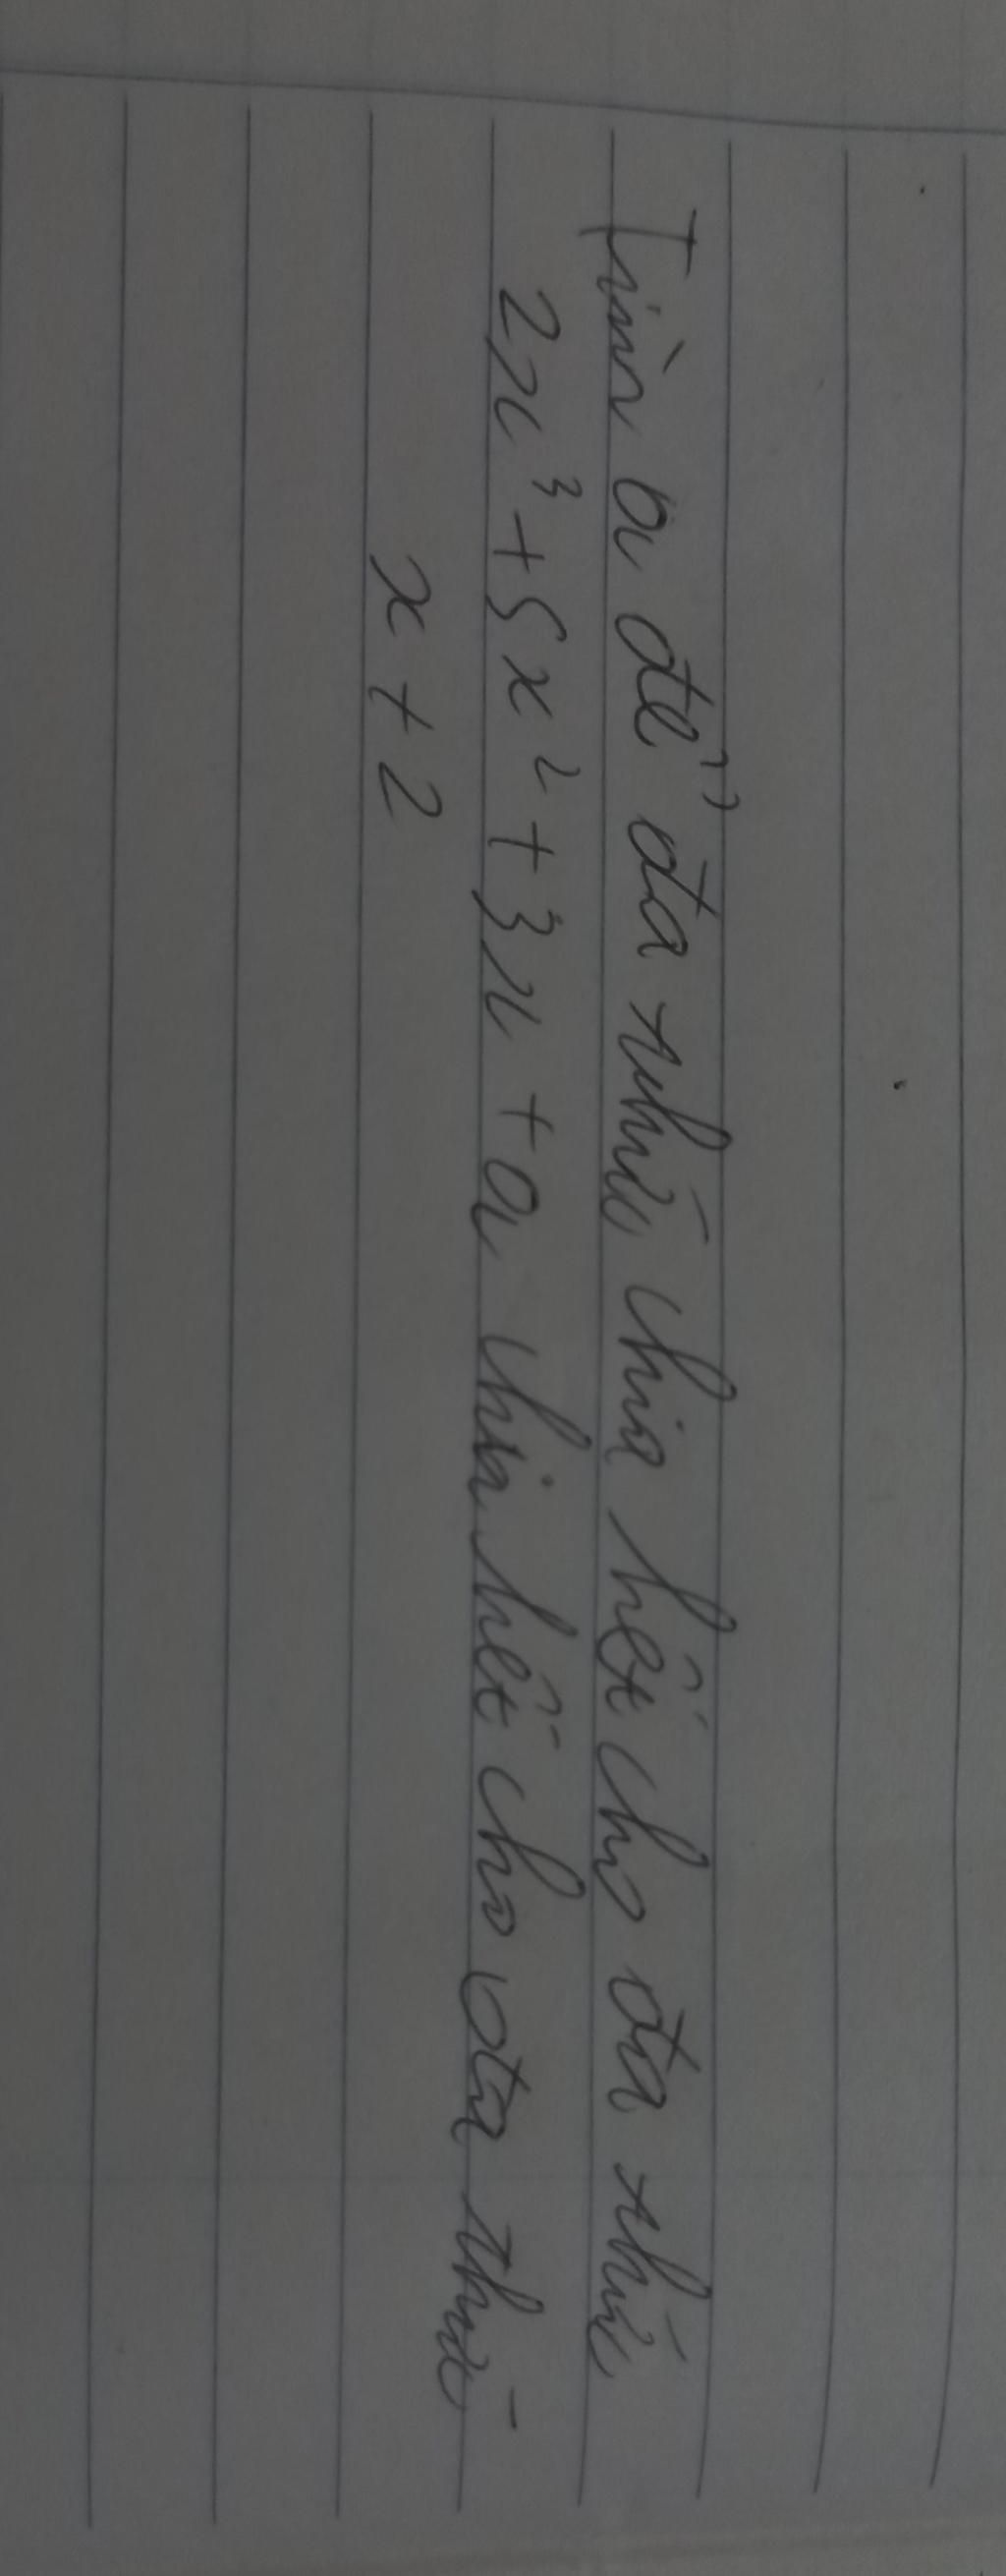 Tìm a để đa thức chia hết cho đa thức
2x³ + 5x² + 3x + a chia hết cho đa thức
x + 2